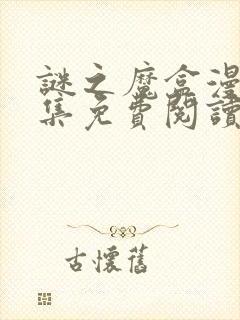 謎之魔盒漫
集免費閱讀
古懷舊